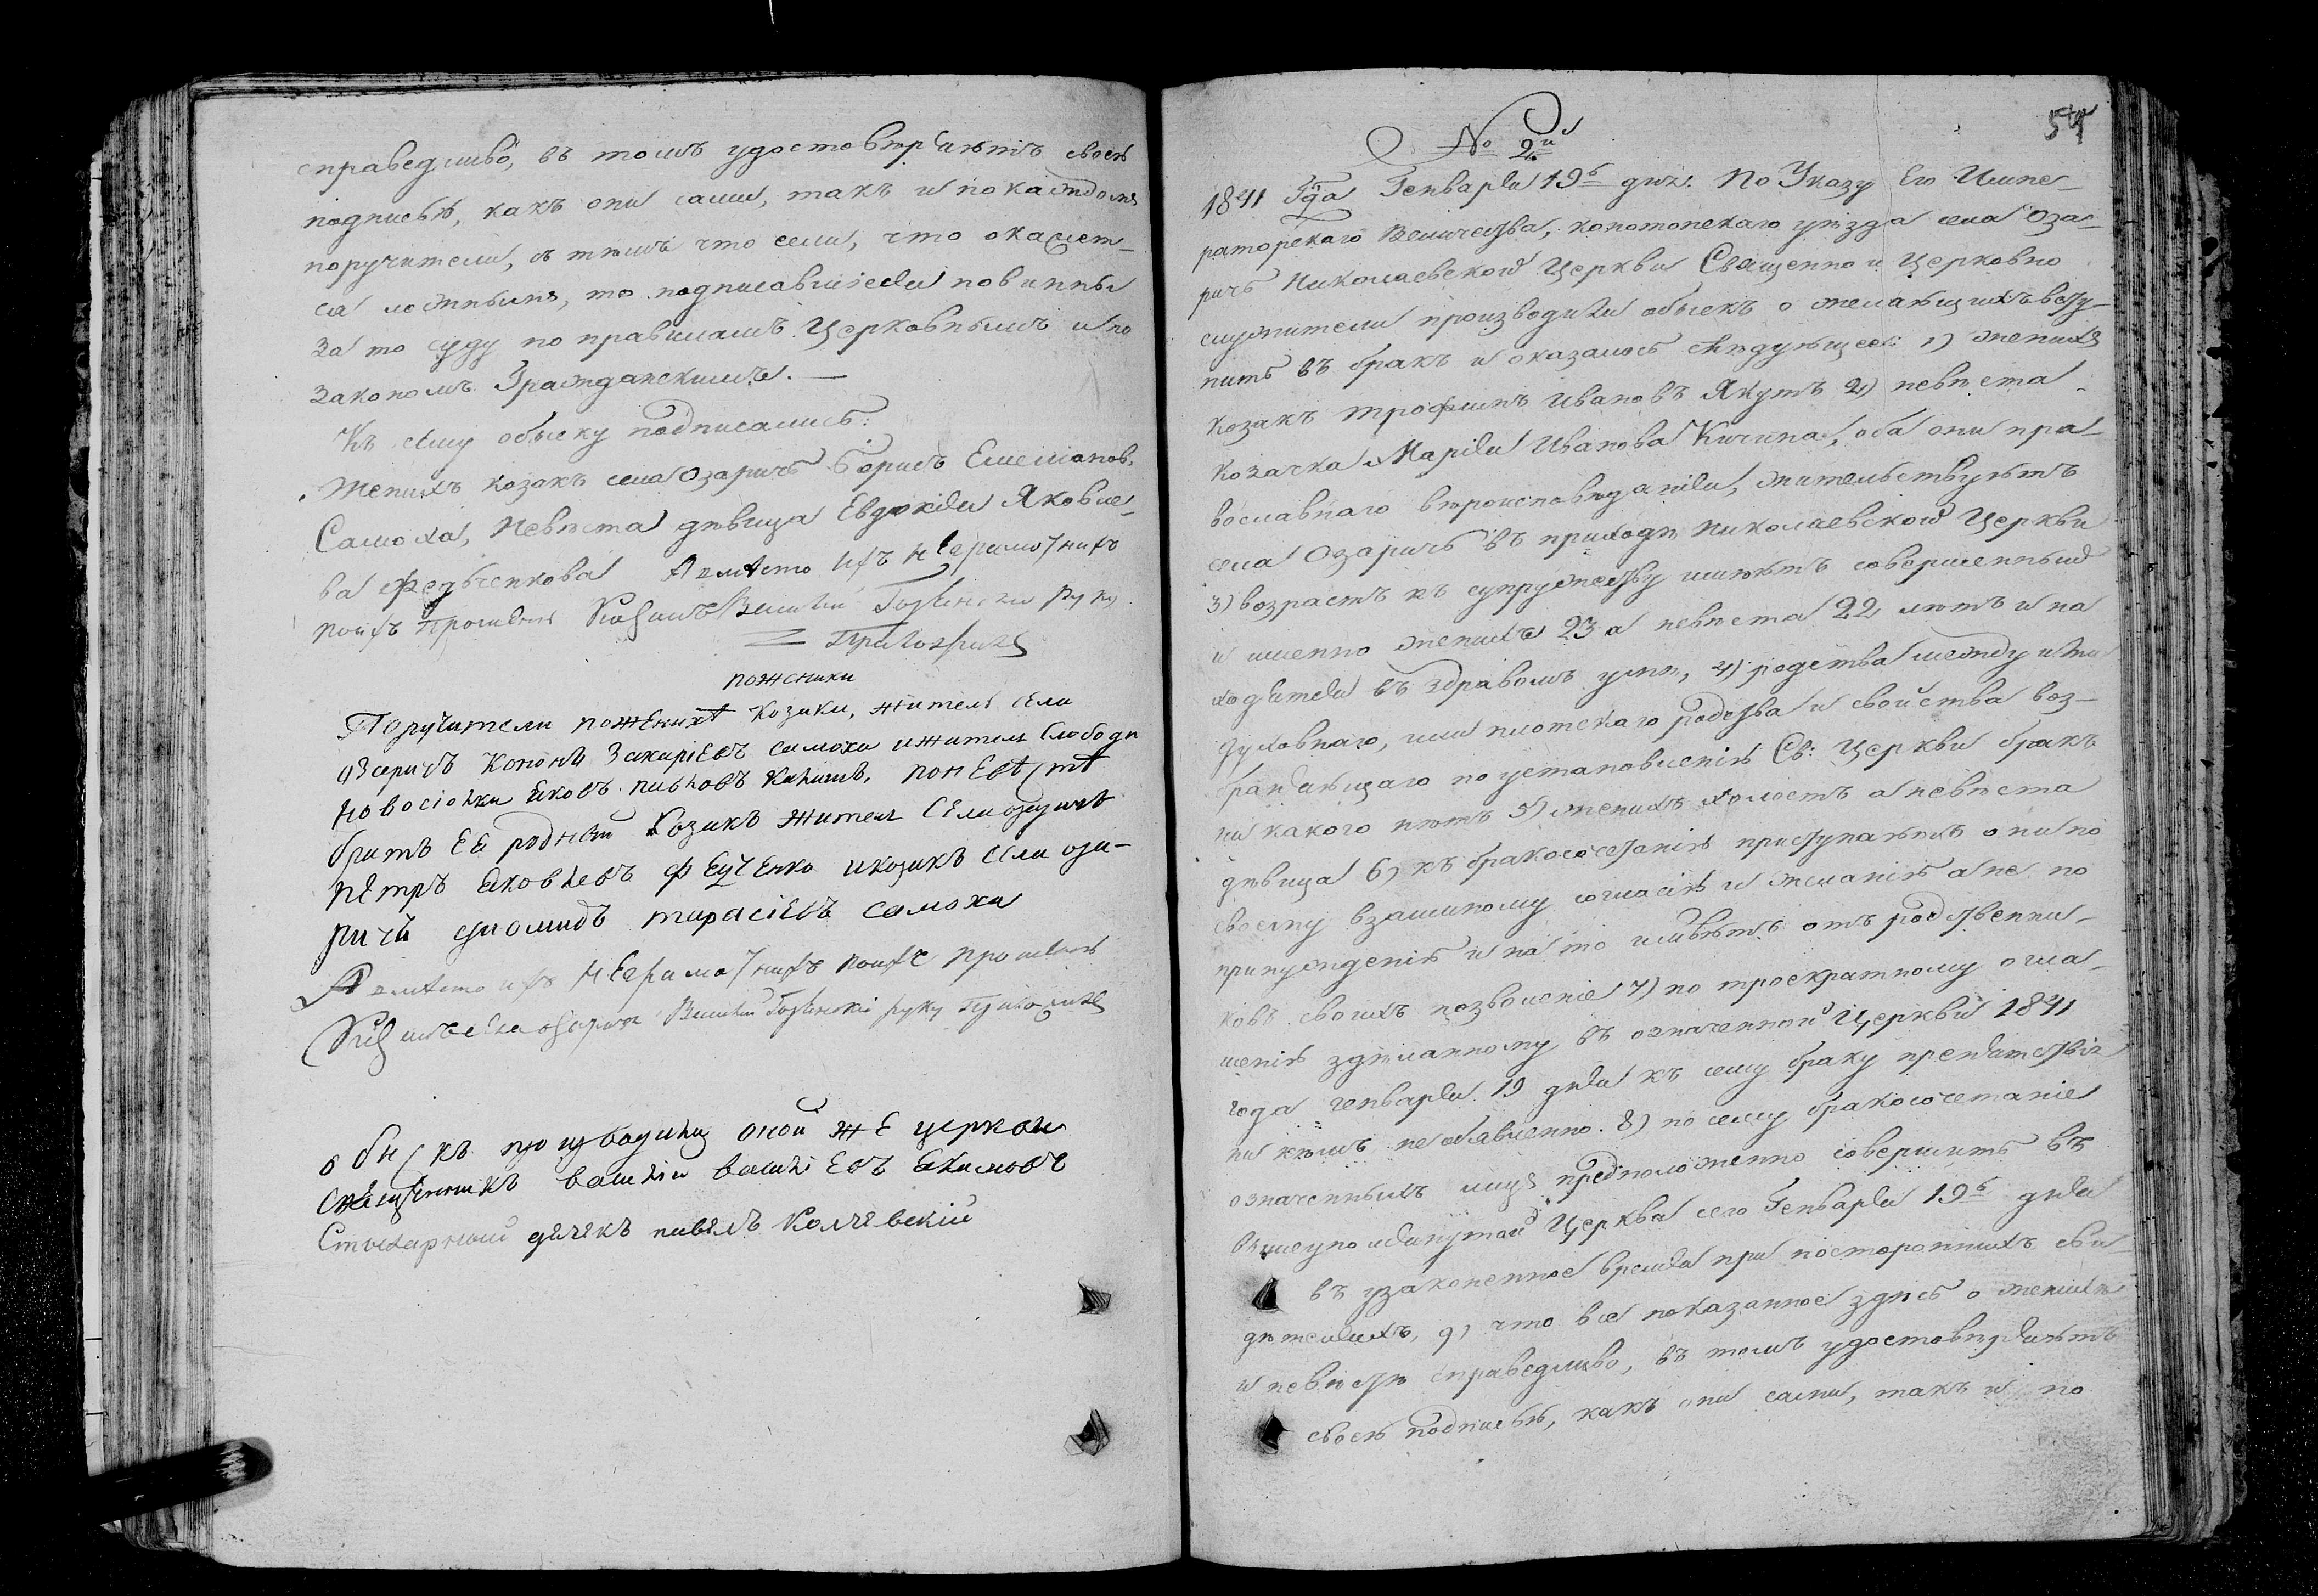 справедливо, въ томъ удостовѣряютъ своею
подписью, какъ они сами, такъ и по каждомъ
поручители, съ тѣмъ что если, что окажет-
ся ложнымъ, то подписавшіеся повинны
за то суду по правиламъ Церковнымъ и по
законамъ Гражданскимъ. —
Къ сему обыску подписались:
Женихъ козакъ села Озаричъ Борисъ Емеліановъ
Самоха, Невѣста дѣвица Евдокія Яковле-
ва Федченкова А вмѣсто ихъ неграмотнихъ
поихъ прошенію руку
Приложилъ
пожених
Поручители поженихѣ козаки, жители села
Озаричъ Кононъ Захаріевъ самоха ижитель Слободи
Новосіолки Яковъ поневѣстѣ
братъ ея родной Козакъ житель Села озаричъ
Петръ Яковлевъ Федченко икозакъ села оза-
ричъ диомидъ тарасіевъ самоха
А вмѣсто ихъ неграмотнихъ поихъ прошенію
села озаричъ руку Приложилъ
обискъ производили оной же церкви
Священникъ василій василіевъ Якимовъ
Стихарный дячекъ павелъ Колчевскій
54
№ 2й
1841 Года Генваря 19ь дня. По Указу Его Импе-
раторскаго Величества, конотопскаго уѣзда села Оза-
ричъ Николаевской Церкви Священно и церковно
служители производили обыскъ о желающихъ всту-
пить въ бракъ и оказалось слѣдующее: 1) женихъ
козакъ Трофимъ Ивановъ Якутъ 2) невѣста
козачка Марія Иванова Кичина, оба они пра-
вославнаго вѣроисповѣданія, жительствуютъ
села Озаричъ въ приходѣ Николаевской Церкви
3) возрастъ къ супружеству имѣютъ совершенный
и именно женихъ 23 а невѣста 22 лѣтъ и на
ходятся въ здравомъ умѣ, 4) родства между ими
духовнаго, или плотскаго родства и свойства воз-
браняющаго по установленію Св: Церкви бракъ
ни какого нѣтъ 5) женихъ холостъ а невѣста
дѣвица 6) къ бракосочетанію приступаютъ они по
своему взаимному согласію и желанію а не по
принужденію и на то имѣютъ отъ родственни-
ковъ своихъ позволеніе 7) по троекратному огла-
шенію здѣланному въ означенной Церкви 1841
года генваря 19 дня къ сему браку препятствія
ни кѣмъ необявленно. 8) по сему бракосочетаніе
означенныхъ лицъ предположенно совершить въ
вышеупомянутой Церкви сего Генваря 19ь дня
въ узаконенное время при постороннихъ сви-
дѣтеляхъ, 9) что все показанное здѣсь о женихѣ
и невѣстѣ справедливо, въ томъ удостовѣряютъ
своею подписью, какъ они сами, такъ и по